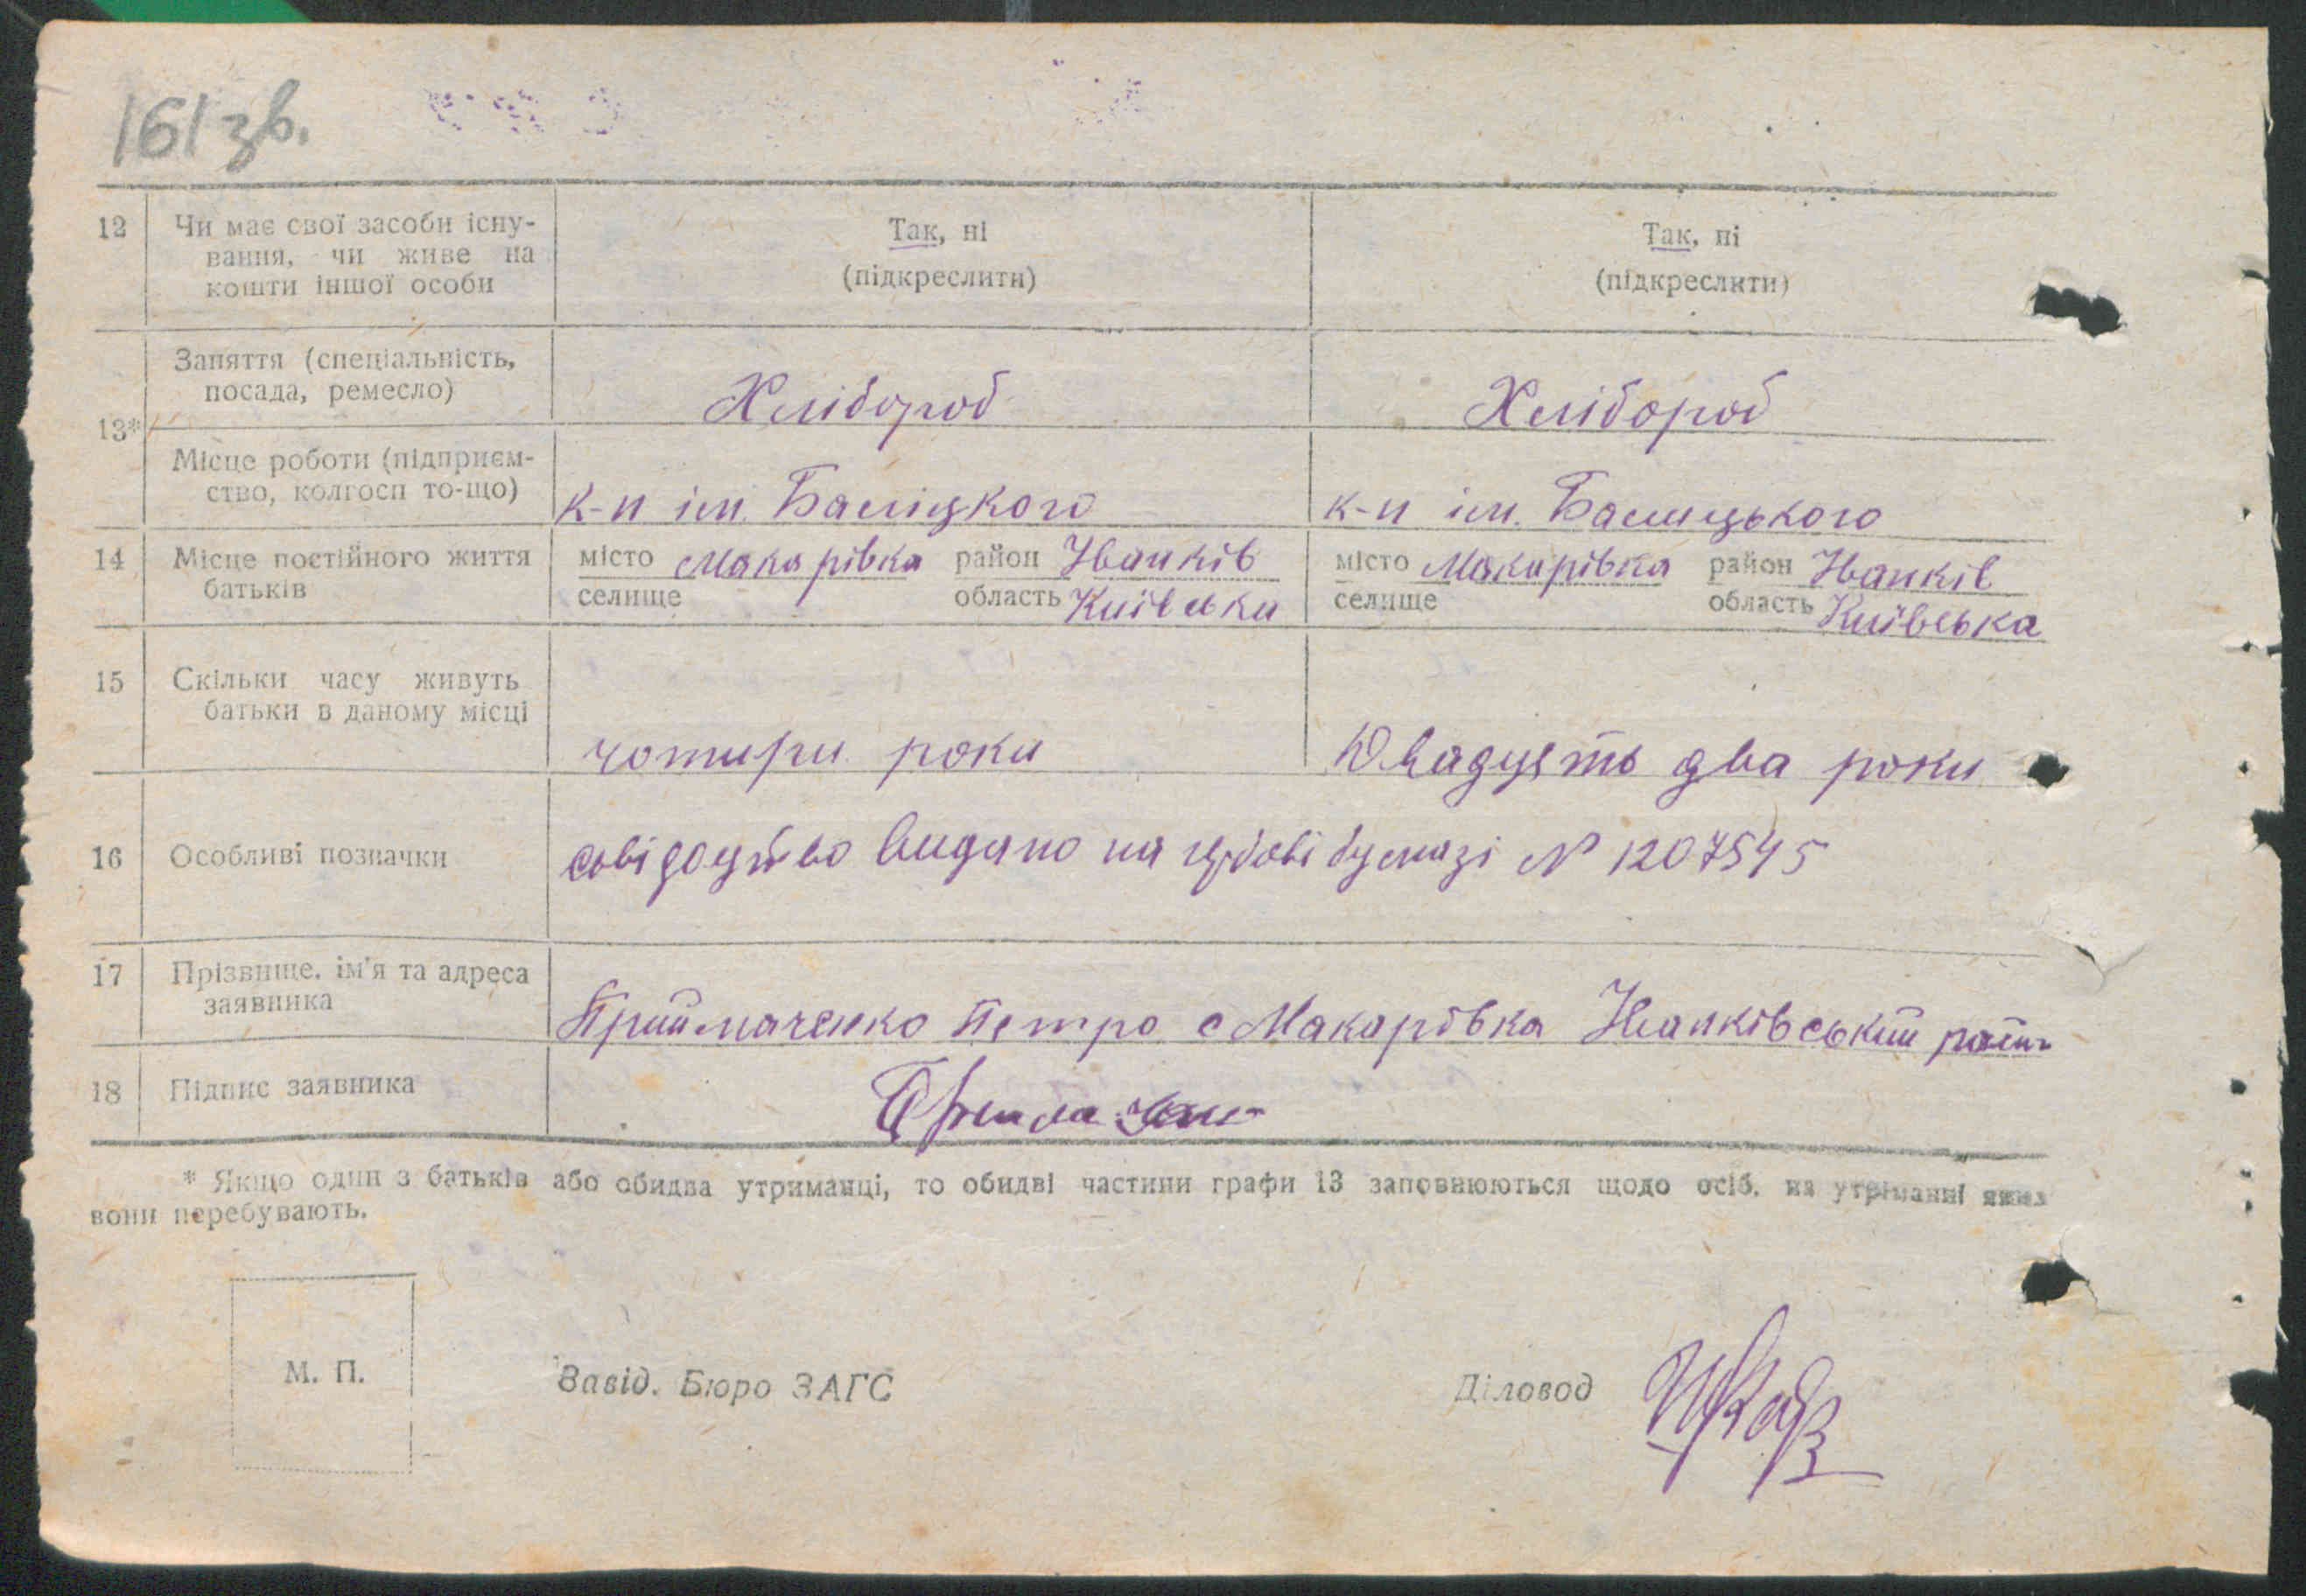 161 зв.
12 Чи має свої засоби існу- Так, ні Так, ні
вання, чи живе на (підкреслити) (підкреслити)
кошти іншої особи
Заняття (спеціальність,
посада, ремесло) Хлібороб Хлібороб
13*
Місце роботи (підприєм-
ство, колгосп то-що) к-п ім. Баліцкого к-п ім. Балицького
14 Місце постійного життя місто Макарівка район Іванків місто Макарівка район Іванків
батьків селище область Київська селище область Київська
15 Скільки часу живуть
батьки в даному місці
чотири роки Двадцять два роки
16 Особливі позначки видано на бумазі № 1207545
17 Прізвище, ім'я та адреса
заявника Приймаченко Петро с Макарівка Іванківський район
18 Підпис заявника
* Якщо один з батьків або обидва утриманці, то обидві частини графи 13 заповнюються щодо осіб, на утриманні яких
вони перебувають.
М. П. Завід. Бюро ЗАГС Діловод